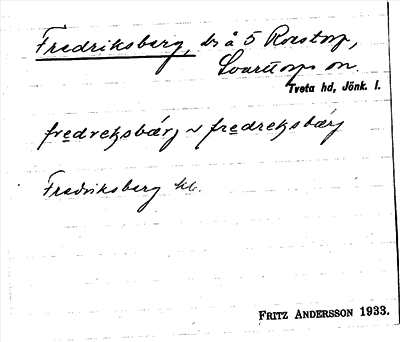 Fredriksberg, ds å 5 Rosstorp,
Svarttorps sn.
Tveta hd, Jönk. l.
fredreksbärj ~ fredreksbärj
Fredriksberg kl.
FRITZ ANDERSSON 1933.